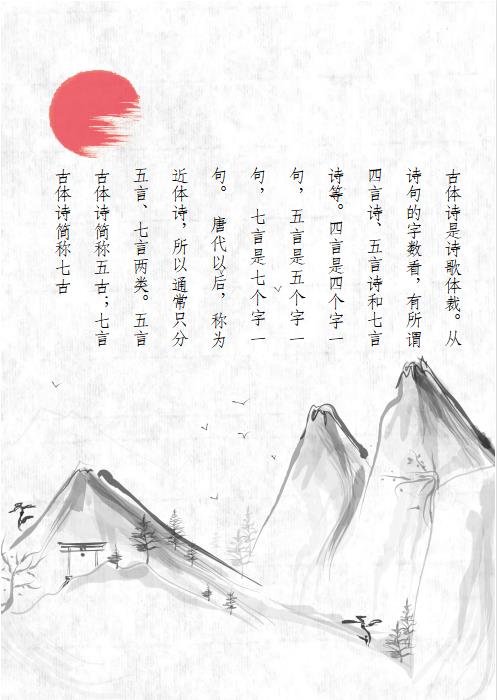 古体诗是诗歌体裁。从
诗句的字数看，有所谓
四言诗、五言诗和七言
诗等。四言是四个字一
句，五言是五个字一
句，七言是七个字一
句。 唐代以后，称为
近体诗，所以通常只分
五言、七言两类。五言
古体诗简称五古；七言
古体诗简称七古